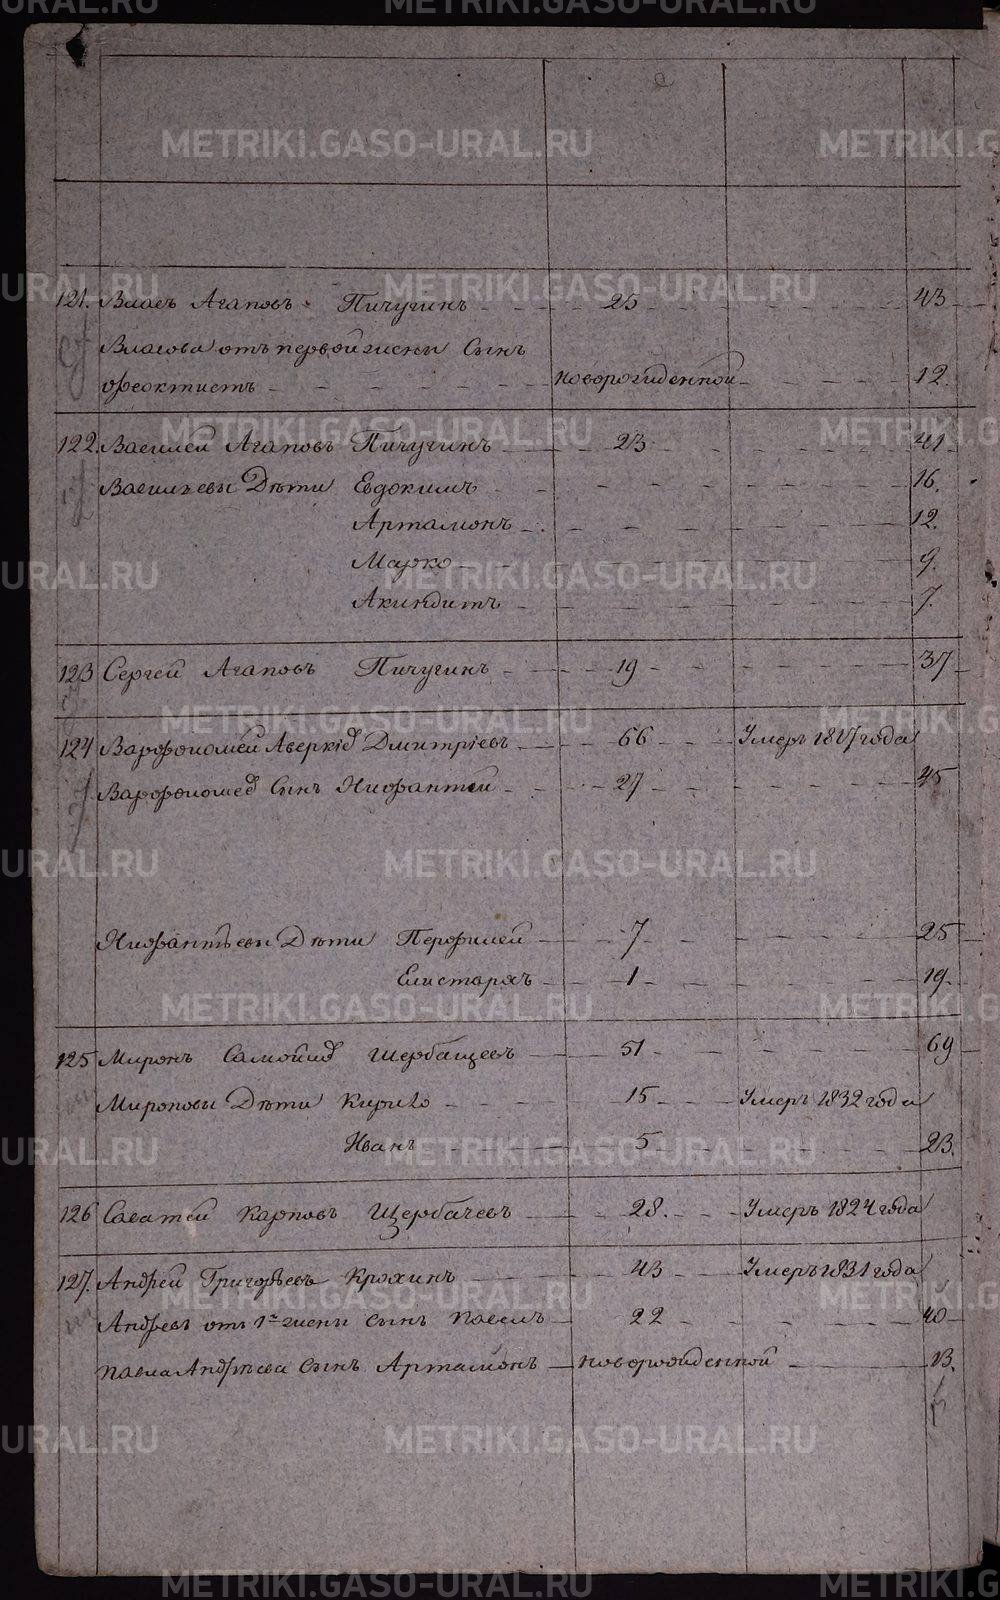 121. Власъ Агаповъ Пичугинъ 25 43
Власова отъ первой жены Сынъ
Феоктистъ новорожденной 12.
122. Василей Агаповъ Пичугинъ 23 41
Васильевы Дѣти Евдокимъ 16.
Артамонъ 12.
Марко 9.
Акиндитъ 7.
123 Сергей Агаповъ Пичугинъ 19 37
124 Варфоломей Аверкіев Дмитріевъ 66 Умеръ 1817 года
Варфоломеев Сынъ Нифантей 27 45
Нифантьевы Дѣти Перфилей 7 25
Елистархъ 1 19.
125 Миронъ Самойлов Щербачевъ 51 69
Мироновы Дѣти Кирило 15 Умеръ 1832 года
Иванъ 5 23.
126 Саватей Карповъ Щербачевъ 28. Умеръ 1824 года
127. Андрей Григорьевъ Крохинъ 43 Умеръ 1831 года
Андреевъ отъ 1й жены сынъ Павелъ 22 40
Павла Андрѣева Сынъ Артамонъ новорожденной 13.
METRIKI.GASO-URAL.RU